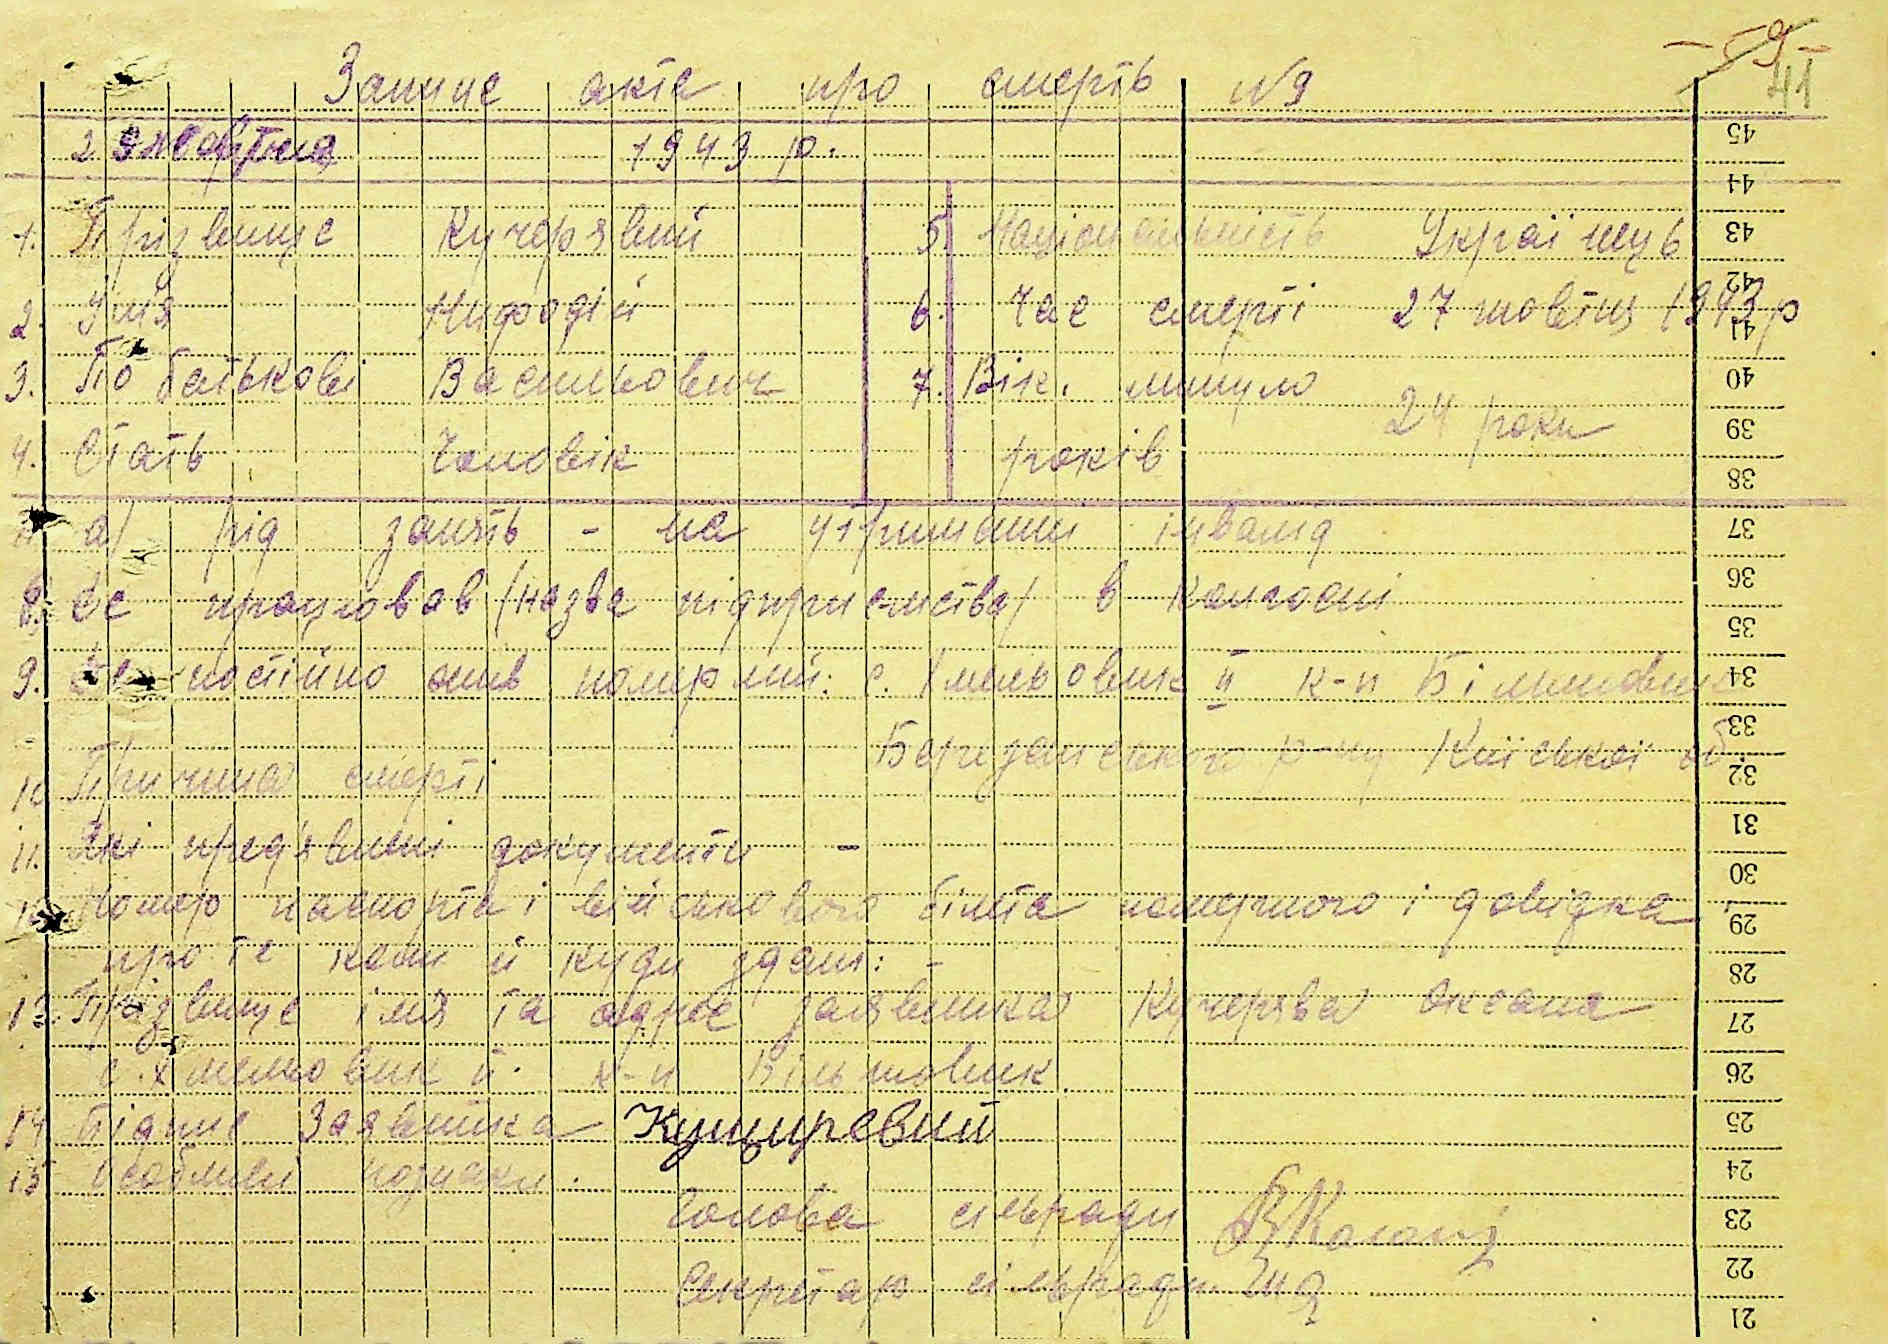 - 59 -
41
Запис акта про смерть № 9
2 жовтня 1943 р.
1. Прізвище Кучерявий 5. Національність Українець
2. Ім'я Мифодій 6. Час смерті 27 1943 р
3. По батькові Васильович 7. Вік. минуло 24 роки
4. Стать Чоловік років
а) рід занять - на утриманні інвалід
де працював (назва підприємства) в колгоспі
9. Де постійно жив померлий: с. Хмельовик ІІ к-п
Березанського р-ну Київської об.
10 Причина смерті
11. Які пред'явлені документи -
12. Номер паспорта і військового білета померлого і довідка
про те коли й куди здані: -
13. Прізвище ім'я та адрес заявника Кучерява Оксана
с. Хмельовик ІІ. к-п
14 Підпис Заявника Кущиревий
15 Особливі познаки.
Голова сільради
Секретар сільради
45
44
43
42
41
40
39
38
37
36
35
34
33
32
31
30
29
28
27
26
25
24
23
22
21